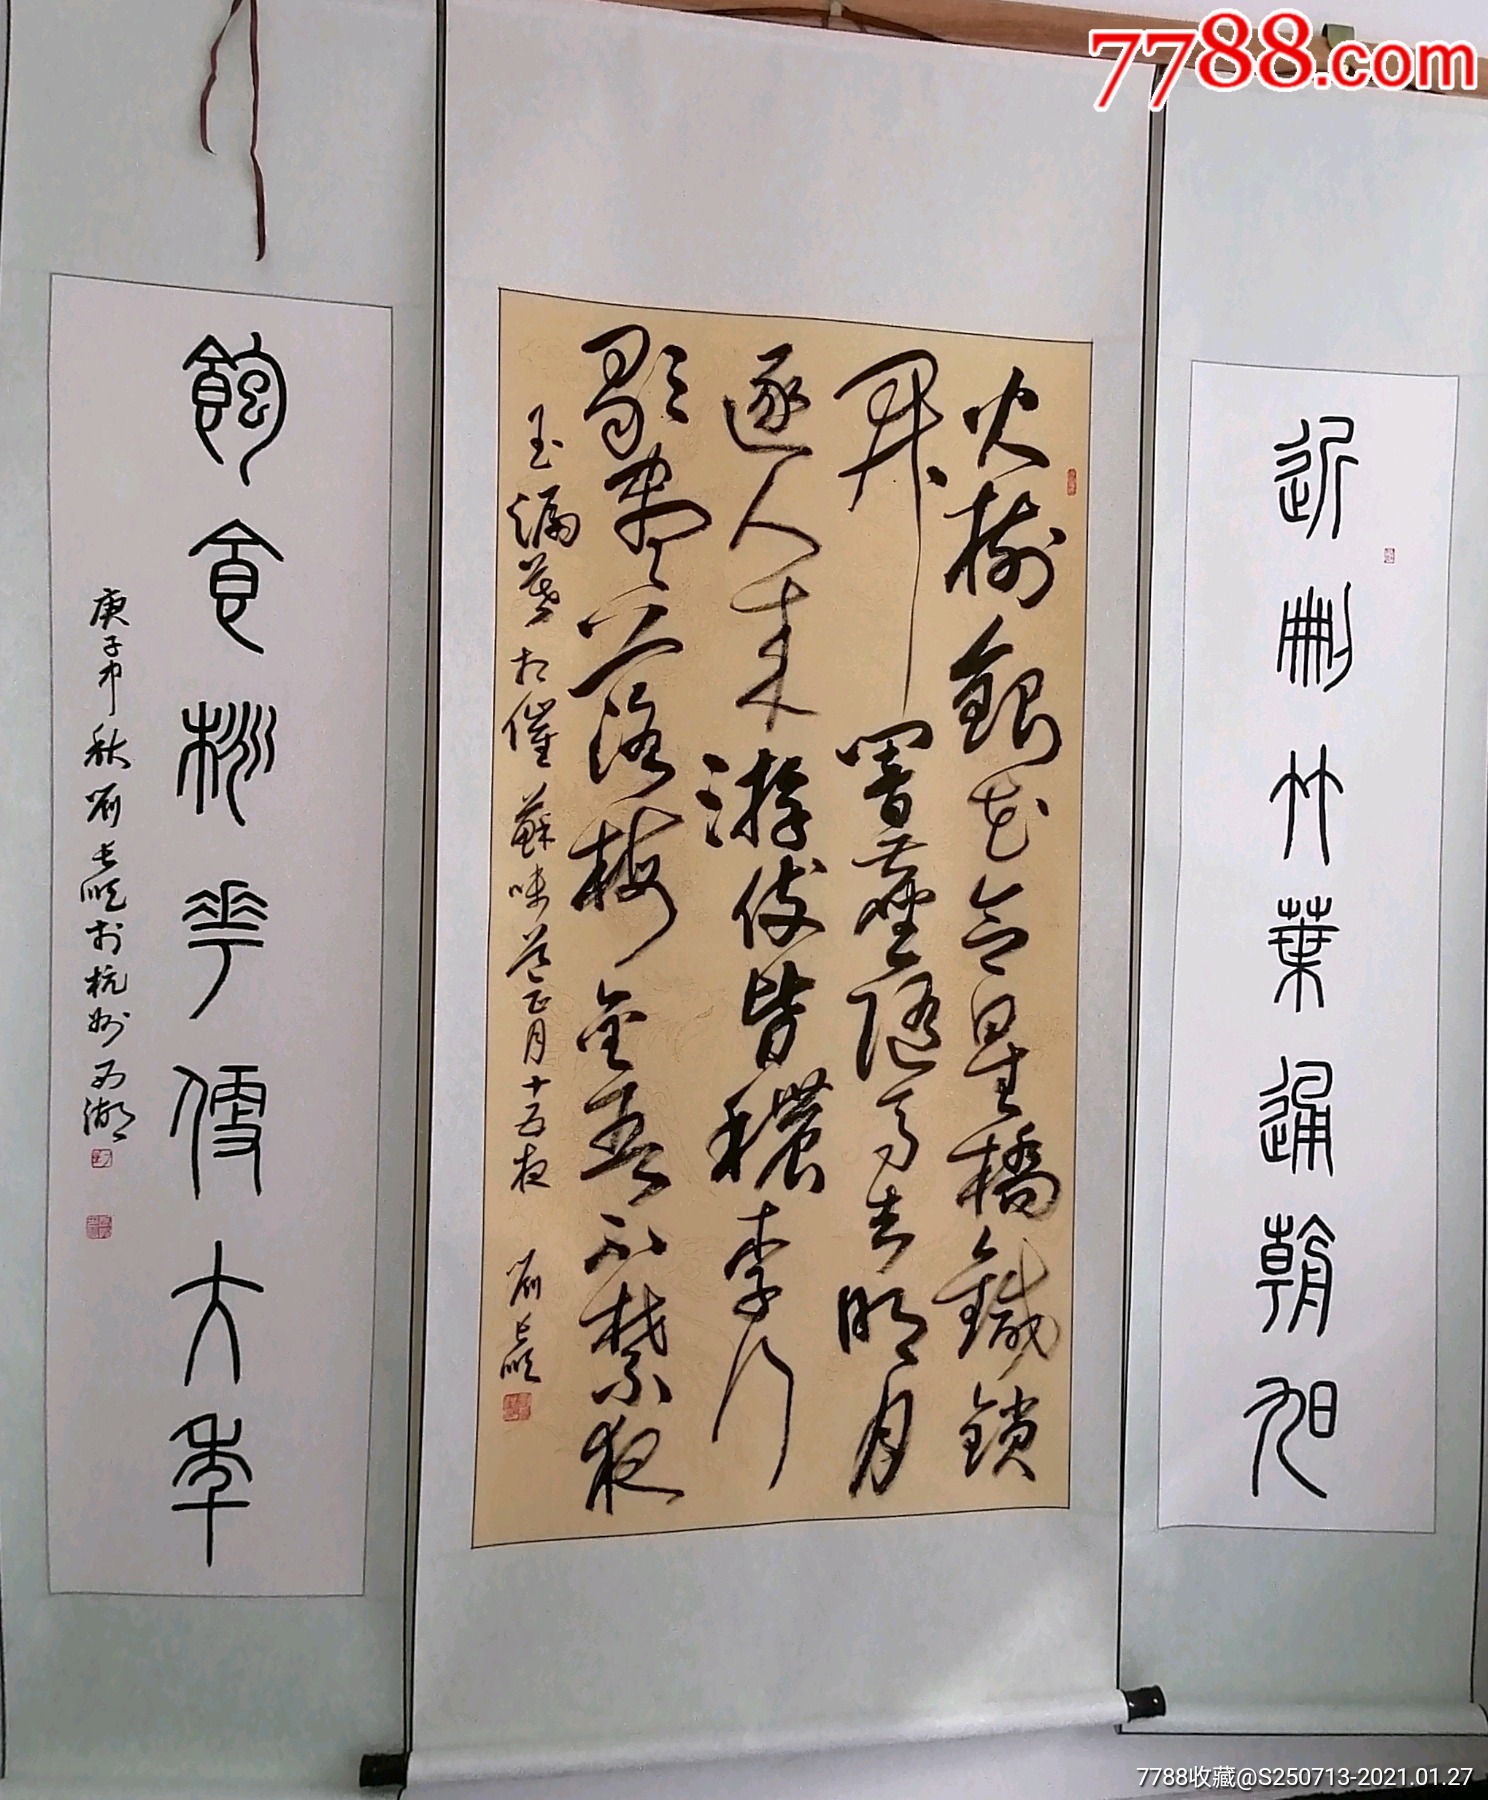 近刪竹葉通朝旭
火樹銀花合星橋鐵鎖
開暗塵隨馬去明月
逐人來游伎皆穠李行
歌盡落梅金吾不禁夜
玉漏莫相催 蘇味道正月十五夜 劉長順
飽食桃華便大年
庚子中秋劉長順於杭州西湖
7788.com
7788收藏@S250713-2021.01.27